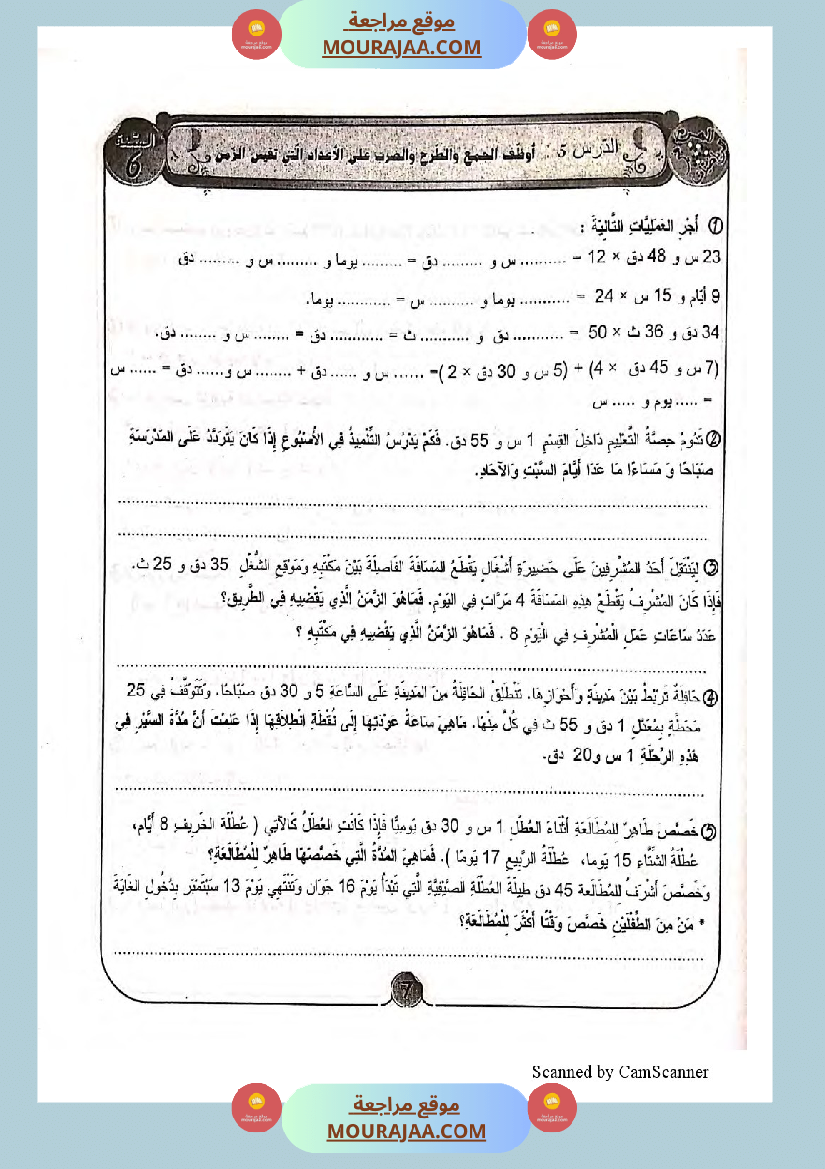 موقع مراجعة
MOURAJAA.COM
السنة 6
الدّرس 5 : أوظّف الجمع والطّرح والضرب على الأعداد الّتي تقيس الزّمن
① أُجْرِ العَمَلِيَّاتِ التَّالِيَةَ :
23 س و 48 دق × 12 = .......... س و ......... دق = ......... يوما و ......... س و ......... دق
9 أيّام و 15 س × 24 = ........... يوما و .......... س = ........... يوما.
34 دق و 36 ث × 50 = ........... دق و .......... ث = ........... دق = ........ س و ........ دق.
(7 س و 45 دق × 4) + (5 س و 30 دق × 2 )= ...... س و ...... دق + ........ س و...... دق = ...... س
= ..... يوم و ..... س
② تَدُومُ حِصَّةُ التَّعْلِيمِ دَاخِلَ القِسْمِ 1 س و 55 دق. فَكَمْ يَدْرُسُ التِّلْمِيذُ فِي الأُسْبُوعِ إِذَا كَانَ يَتَرَدَّدُ عَلَى المَدْرَسَةِ
صَبَاحًا وَ مَسَاءًا مَا عَدَا أَيَّامَ السَّبْتِ وَالآحَادِ.
③ لِيَنْتَقِلَ أَحَدُ المُشْرِفِينَ عَلَى حَضِيرَةِ أَشْغَالٍ يَقْطَعُ المَسَافَةَ الفَاصِلَةَ بَيْنَ مَكْتَبِهِ وَمَوْقِعِ الشُّغْلِ 35 دق و 25 ث.
فَإِذَا كَانَ المُشْرِفُ يَقْطَعُ هَذِهِ المَسَافَةَ 4 مَرَّاتٍ فِي اليَوْمِ. فَمَاهُوَ الزَّمَنُ الَّذِي يَقْضِيهِ فِي الطَّرِيقِ؟
عَدَدُ سَاعَاتِ عَمَلِ الْمُشْرِفِ فِي الْيَوْمِ 8 . فَمَاهُوَ الزَّمَنُ الَّذِي يَقْضِيهِ فِي مَكْتَبِهِ ؟
④ حَافِلَةٌ تَرْبِطُ بَيْنَ مَدِينَةٍ وَأَحْوَازِهَا. تَنْطَلِقُ الحَافِلَةُ مِنَ المَدِينَةِ عَلَى السَّاعَةِ 5 و 30 دق صَبَاحًا. وَتَتَوَقَّفُ فِي 25
مَحَطَّةٍ بِمُعَدَّلِ 1 دق و 55 ث فِي كُلٍّ مِنْهَا. مَاهِيَ سَاعَةُ عَوْدَتِهَا إِلَى نُقْطَةِ انْطِلَاقِهَا إِذَا عَلِمْتَ أَنَّ مُدَّةَ السَّيْرِ فِي
هَذِهِ الرِّحْلَةِ 1 س و20 دق.
⑤ خَصَّصَ طَاهِرٌ لِلمُطَالَعَةِ أَثْنَاءَ العُطَلِ 1 س و 30 دق يَوْمِيًّا فَإِذَا كَانَتِ العُطَلُ كَالآتِي ( عُطْلَةُ الخَرِيفِ 8 أَيَّام،
عُطْلَةُ الشِّتَاءِ 15 يَوما، عُطْلَةُ الرَّبِيعِ 17 يَومًا ). فَمَاهِيَ المُدَّةُ الَّتِي خَصَّصَهَا طَاهِرٌ لِلْمُطَالَعَةِ؟
وَخَصَّصَ أَشْرَفُ لِلمُطَالَعة 45 دق طِيلَةَ العُطْلَةِ الصَّيْفِيَّةِ الَّتِي تَبْدَأُ يَوْمَ 16 جَوَان وَتَنْتَهِي يَوْمَ 13 سِبْتَمْبَر بِدُخُولِ الغَايَةِ
* مَنْ مِنَ الطِّفْلَيْنِ خَصَّصَ وَقْتًا أَكْثَرَ لِلْمُطَالَعَةِ؟
7
Scanned by CamScanner
موقع مراجعة
MOURAJAA.COM